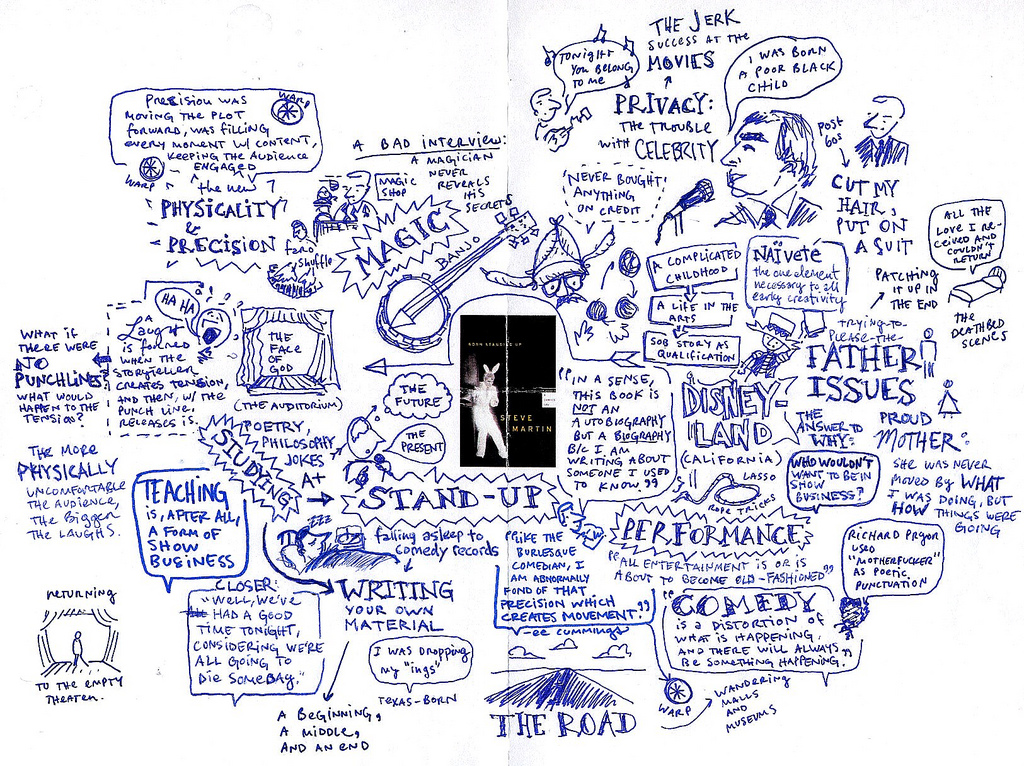 THE JERK
SUCCESS AT THE
MOVIES
TONIGHT
YOU BELONG
TO ME
I WAS BORN
A POOR BLACK
CHILD
PRIVACY:
THE TROUBLE
with CELEBRITY
POST
60s
CUT MY
HAIR,
PUT ON
A SUIT
"NEVER BOUGHT
ANYTHING
ON CREDIT
PRECISION WAS
MOVING THE PLOT
FORWARD, WAS FILLING
EVERY MOMENT W/ CONTENT,
KEEPING THE AUDIENCE
ENGAGED
WARP
WARP
the new
PHYSICALITY
&
PRECISION
A BAD INTERVIEW:
A MAGICIAN
NEVER
REVEALS
HIS
SECRETS
MAGIC
SHOP
MAGIC
faro
shuffle
BANJO
A COMPLICATED
CHILDHOOD
A LIFE IN THE
ARTS
SOB STORY AS
QUALIFICATION
NAÏVETÉ
the one element
necessary to all
early creativity
ALL THE
LOVE I RE-
CEIVED AND
COULDN'T
RETURN
PATCHING
IT UP IN
THE END
THE
DEATHBED
SCENES
TRYING-TO-
PLEASE-THE-
FATHER
ISSUES
HA HA
A
Laugh
is formed
WHEN THE
STORYTELLER
CREATES TENSION,
AND THEN, W/ THE
PUNCH LINE,
RELEASES IT.
WHAT IF
THERE WERE
NO
PUNCHLINES
WHAT WOULD
HAPPEN TO THE
TENSION?
THE
FACE OF
GOD
(THE AUDITORIUM)
THE
FUTURE
THE
PRESENT
BORN STANDING UP
STEVE
MARTIN
"IN A SENSE,
THIS BOOK IS
NOT AN
AUTOBIOGRAPHY
BUT A BIOGRAPHY
B/C I AM
WRITING ABOUT
SOMEONE I USED
TO KNOW."
DISNEY-
LAND
(CALIFORNIA)
LASSO
ROPE TRICKS
THE
ANSWER TO
WHY:
WHO WOULDN'T
WANT TO BE IN
SHOW
BUSINESS?
PROUD
MOTHER:
SHE WAS NEVER
MOVED BY WHAT
I WAS DOING, BUT
HOW THINGS WERE
GOING
THE MORE
PHYSICALLY
UNCOMFORTABLE
THE AUDIENCE,
THE BIGGER
THE LAUGHS.
STUDYING
POETRY,
PHILOSOPHY
JOKES
A+
STAND-UP
TEACHING
IS, AFTER ALL,
A FORM OF
SHOW
BUSINESS
ZZZ
falling asleep to
comedy records
"LIKE THE
BURLESQUE
COMEDIAN, I
AM ABNORMALLY
FOND OF THAT
PRECISION WHICH
CREATES MOVEMENT."
-ee cummings
PERFORMANCE
"ALL ENTERTAINMENT IS OR IS
ABOUT TO BECOME OLD-FASHIONED"
RICHARD PRYOR
USED
"MOTHERFUCKER"
AS POETIC
PUNCTUATION
"COMEDY
IS A DISTORTION OF
WHAT IS HAPPENING,
AND THERE WILL ALWAYS
BE SOMETHING HAPPENING."
WRITING
YOUR OWN
MATERIAL
CLOSER:
"WELL, WE'VE
HAD A GOOD
TIME TONIGHT,
CONSIDERING WE'RE
ALL GOING TO
DIE SOMEDAY."
RETURNING
TO THE EMPTY
THEATER.
I WAS DROPPING
MY "ings"
TEXAS-BORN
A BEGINNING,
A MIDDLE,
AND AN END
THE ROAD
WARP
WANDERING
MALLS
AND
MUSEUMS